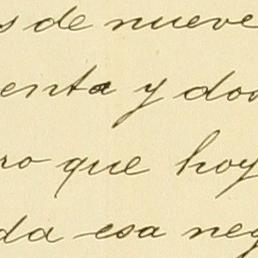 s de nueve
enta y dos
ro que hoy
da esa neg